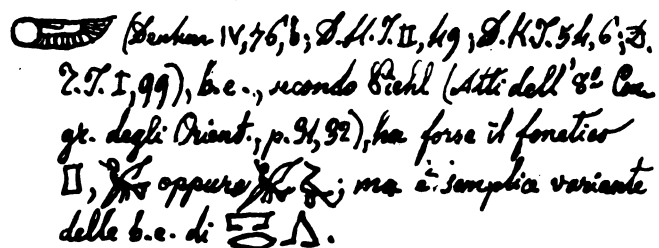 (Denken IV, 76, b; D.H.I. II, 49; D.K.I. 54, 6; D.
T.I. I, 99), b.e., secondo Piehl (Atti dell' 8º Con-
gr. degli Orient., p. 91, 92), ha forse il fonetico
𓊪, oppure ; ma è semplice variante
delle b.e. di 𓉐𓂋𓂻.